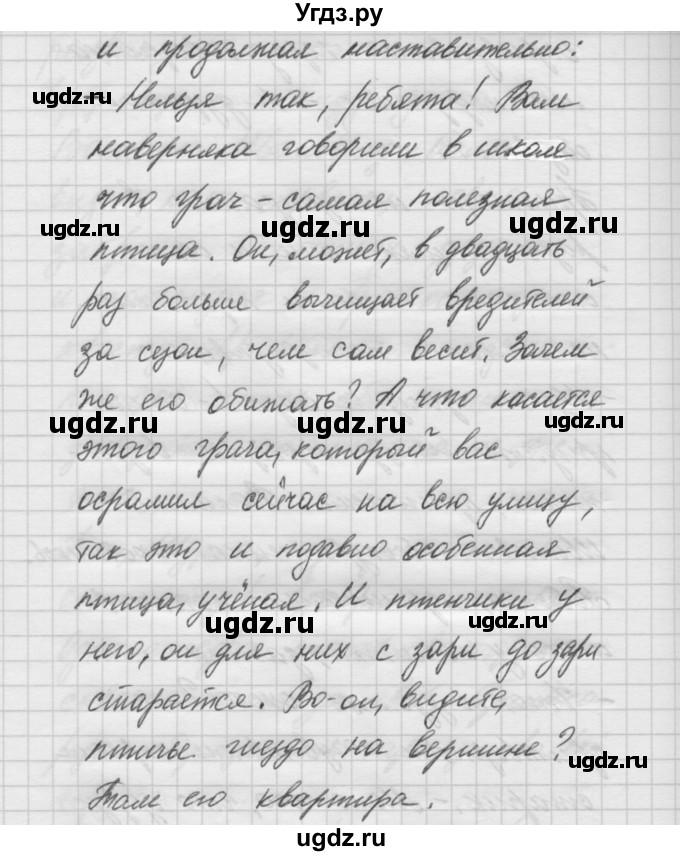 Угдз.ру
и продолжал наставительно:
- Нельзя так, ребята! Вам
наверняка говорили в школе
что грач - самая полезная
птица. Он, может, в двадцать
раз больше вычищает вредителей
за сезон, чем сам весит. Зачем
же его обижать? А что касается
этого грача, который вас
осрамил сейчас на всю улицу,
так это и подавно особенная
птица, учёная. И птенчики у
него, он для них с зари до зари
старается. Во-он, видите,
птичье гнездо на вершине?
Там его квартира.
ugdz.ru
ugdz.ru
ugdz.ru
ugdz.ru
ugdz.ru
ugdz.ru
ugdz.ru
ugdz.ru
ugdz.ru
ugdz.ru
ugdz.ru
ugdz.ru